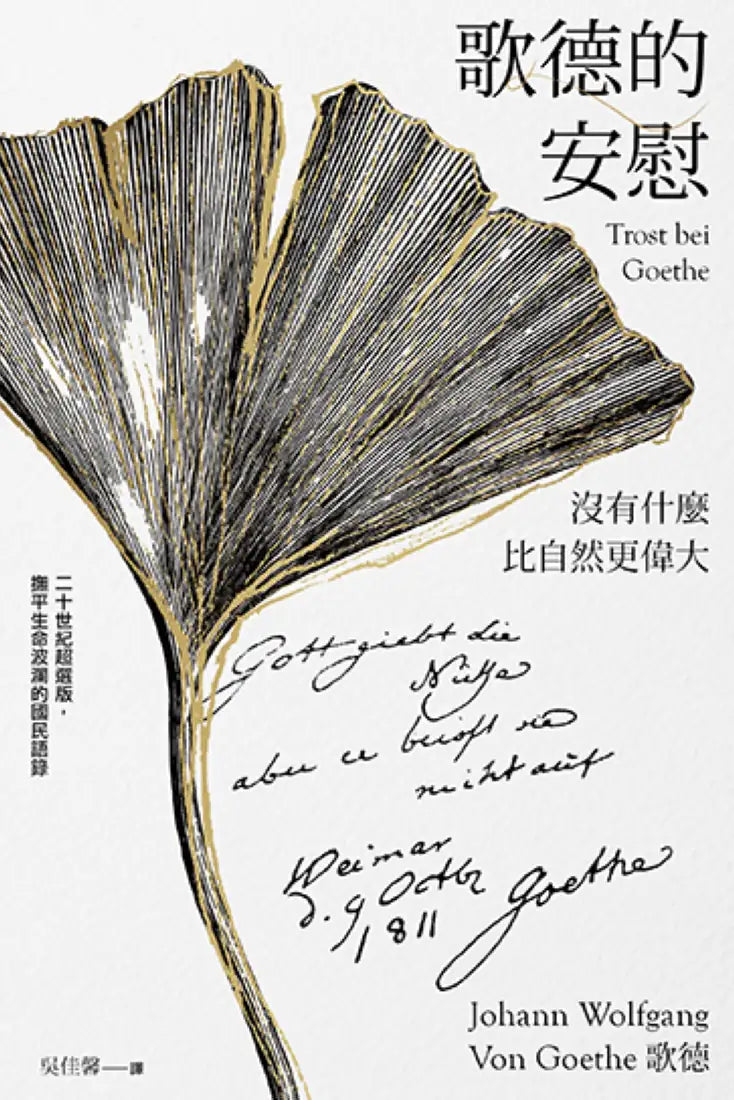 歌德的
安慰
Trost bei
Goethe
沒有什麼
比自然更偉大
二十世紀超選版，
撫平生命波瀾的國民語錄
Gott giebt die
Nüsse
aber er beißt sie
nicht auf
Weimar
d. 9 Octbr
1811
Goethe
Johann Wolfgang
Von Goethe 歌德
吳佳馨——譯